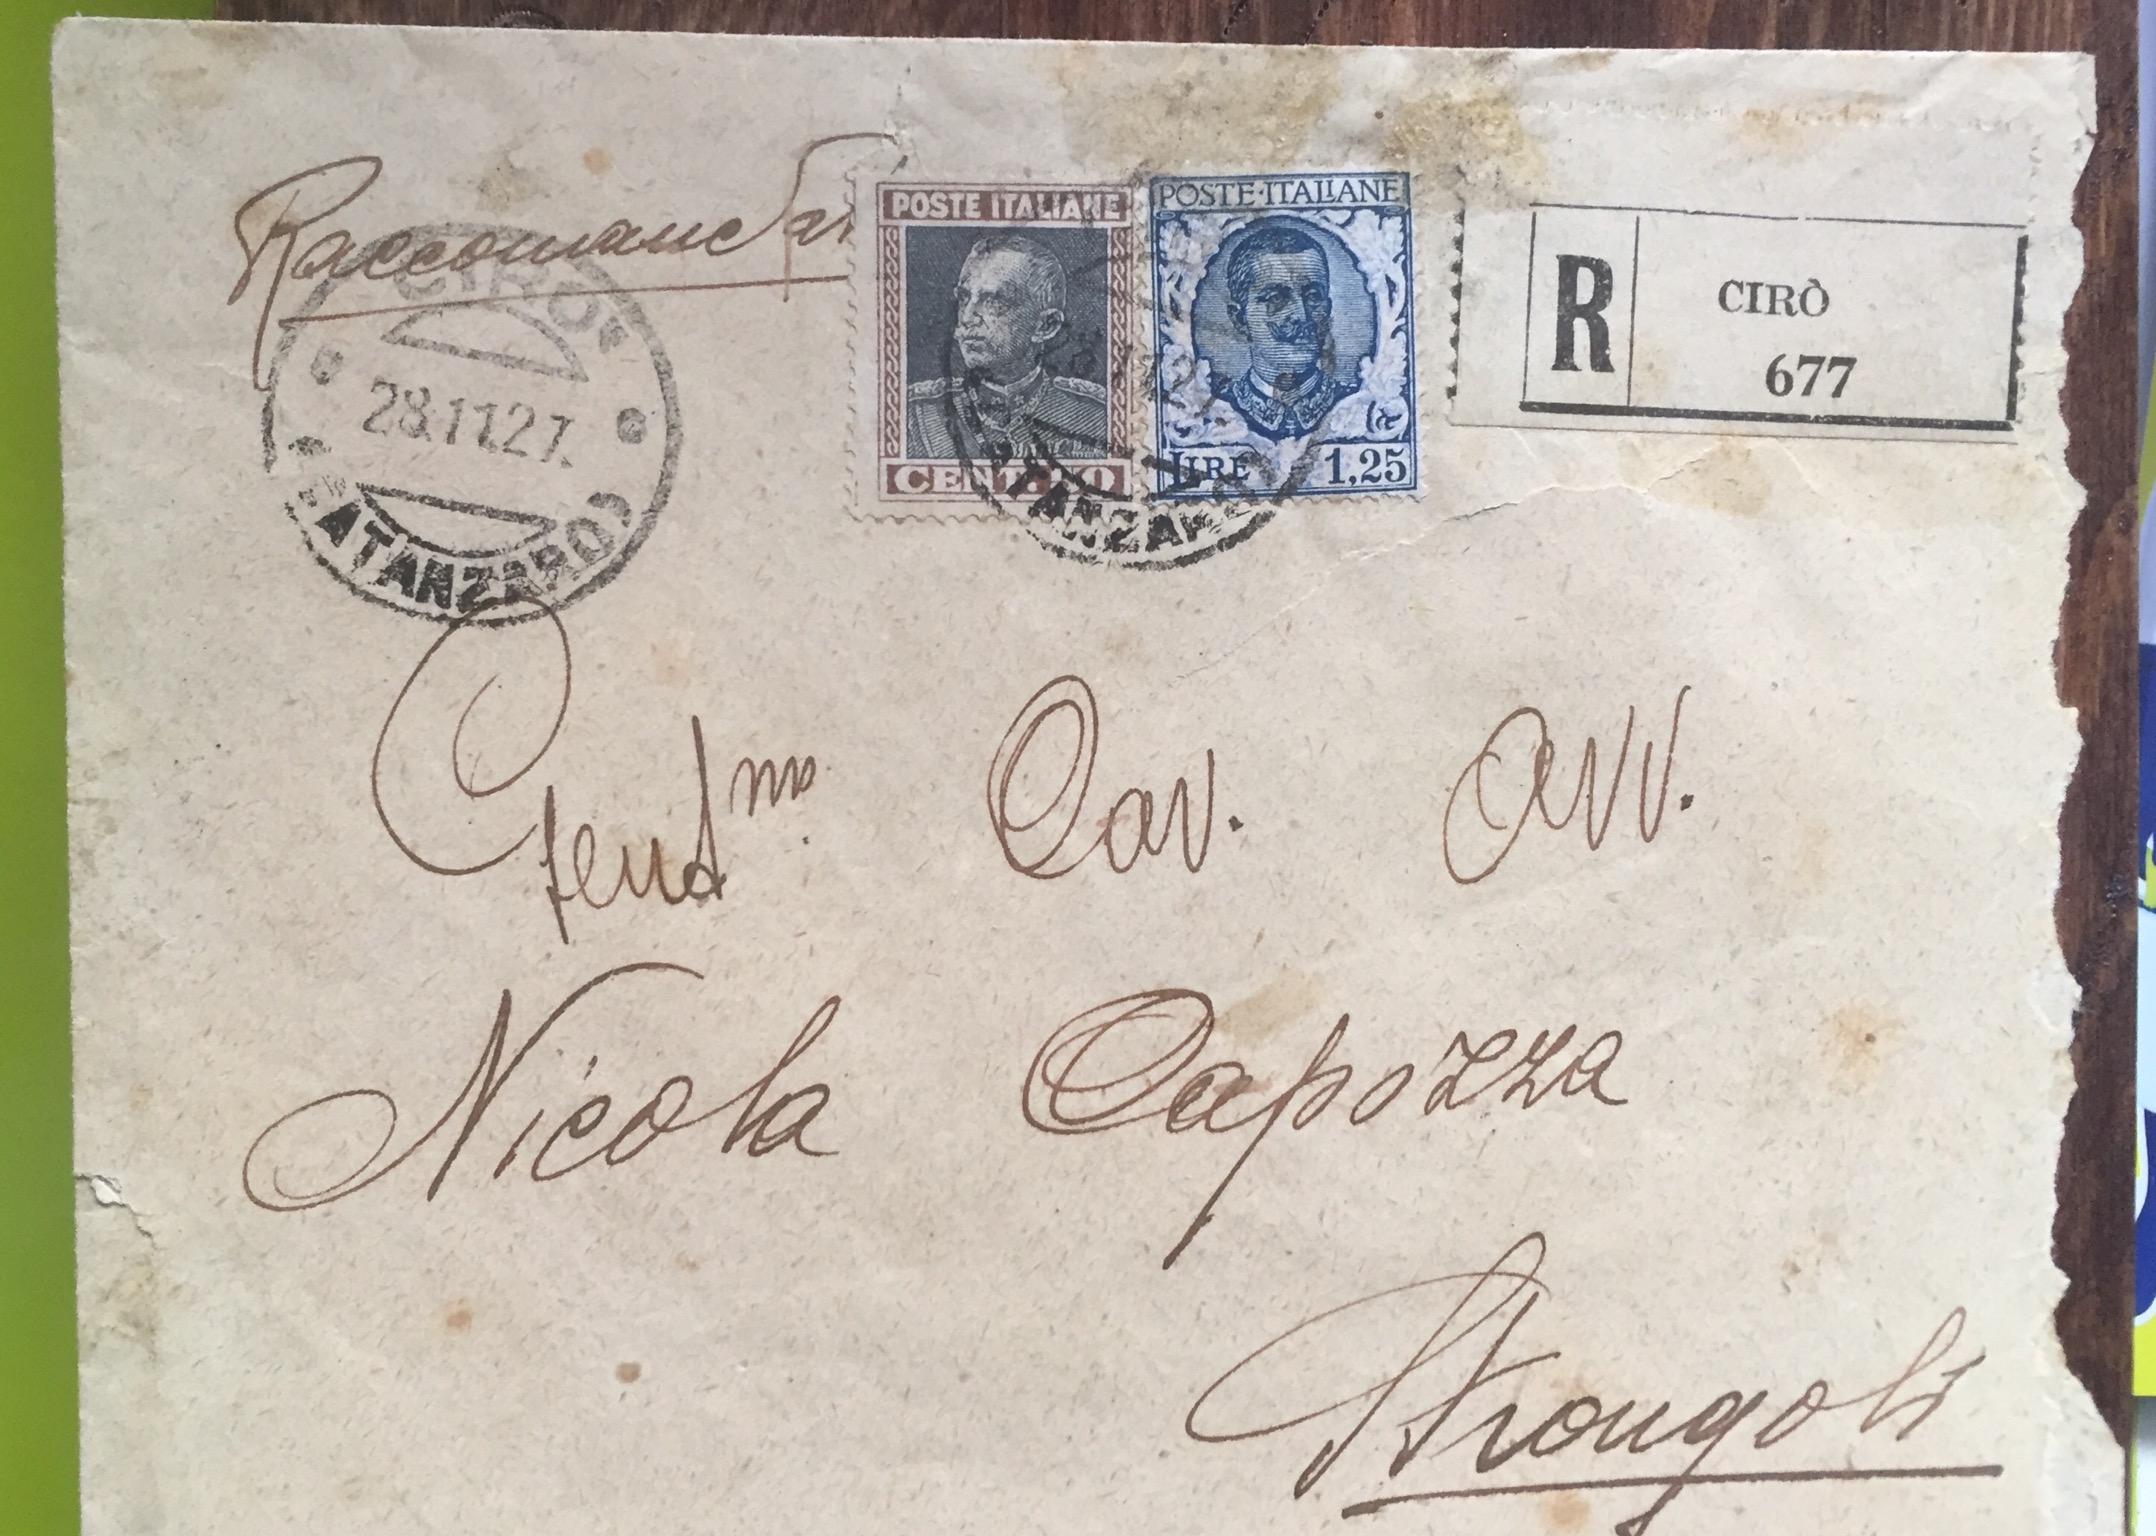 Raccomandata
CIRO'
28.11.27.
(CATANZARO)
POSTE ITALIANE
CENT. 50
POSTE·ITALIANE
LIRE 1,25
R
CIRÒ
677
Gent.mo Cav. Avv.
Nicola Capozza
Strongoli